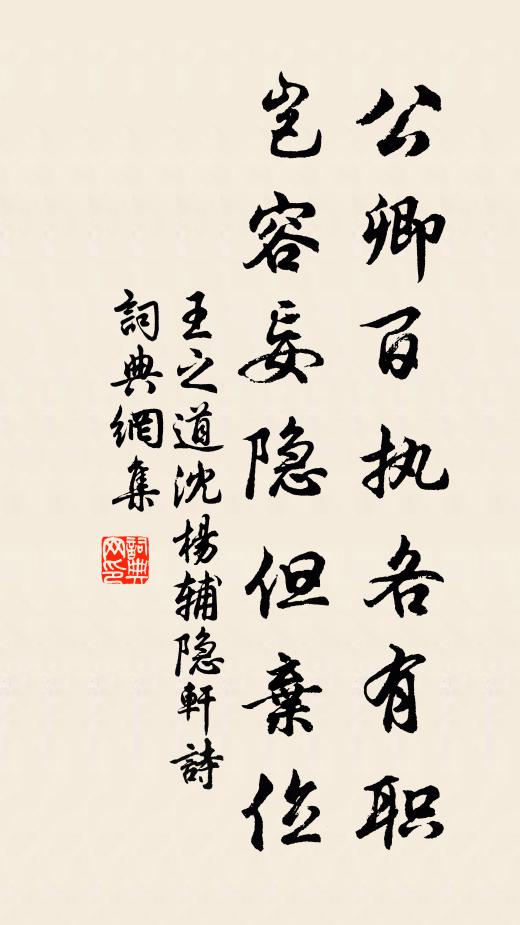 公卿百执各有职
岂容妄隐但棄
王之道沈楊辅隐軒詩
詞典網集
詞典网印